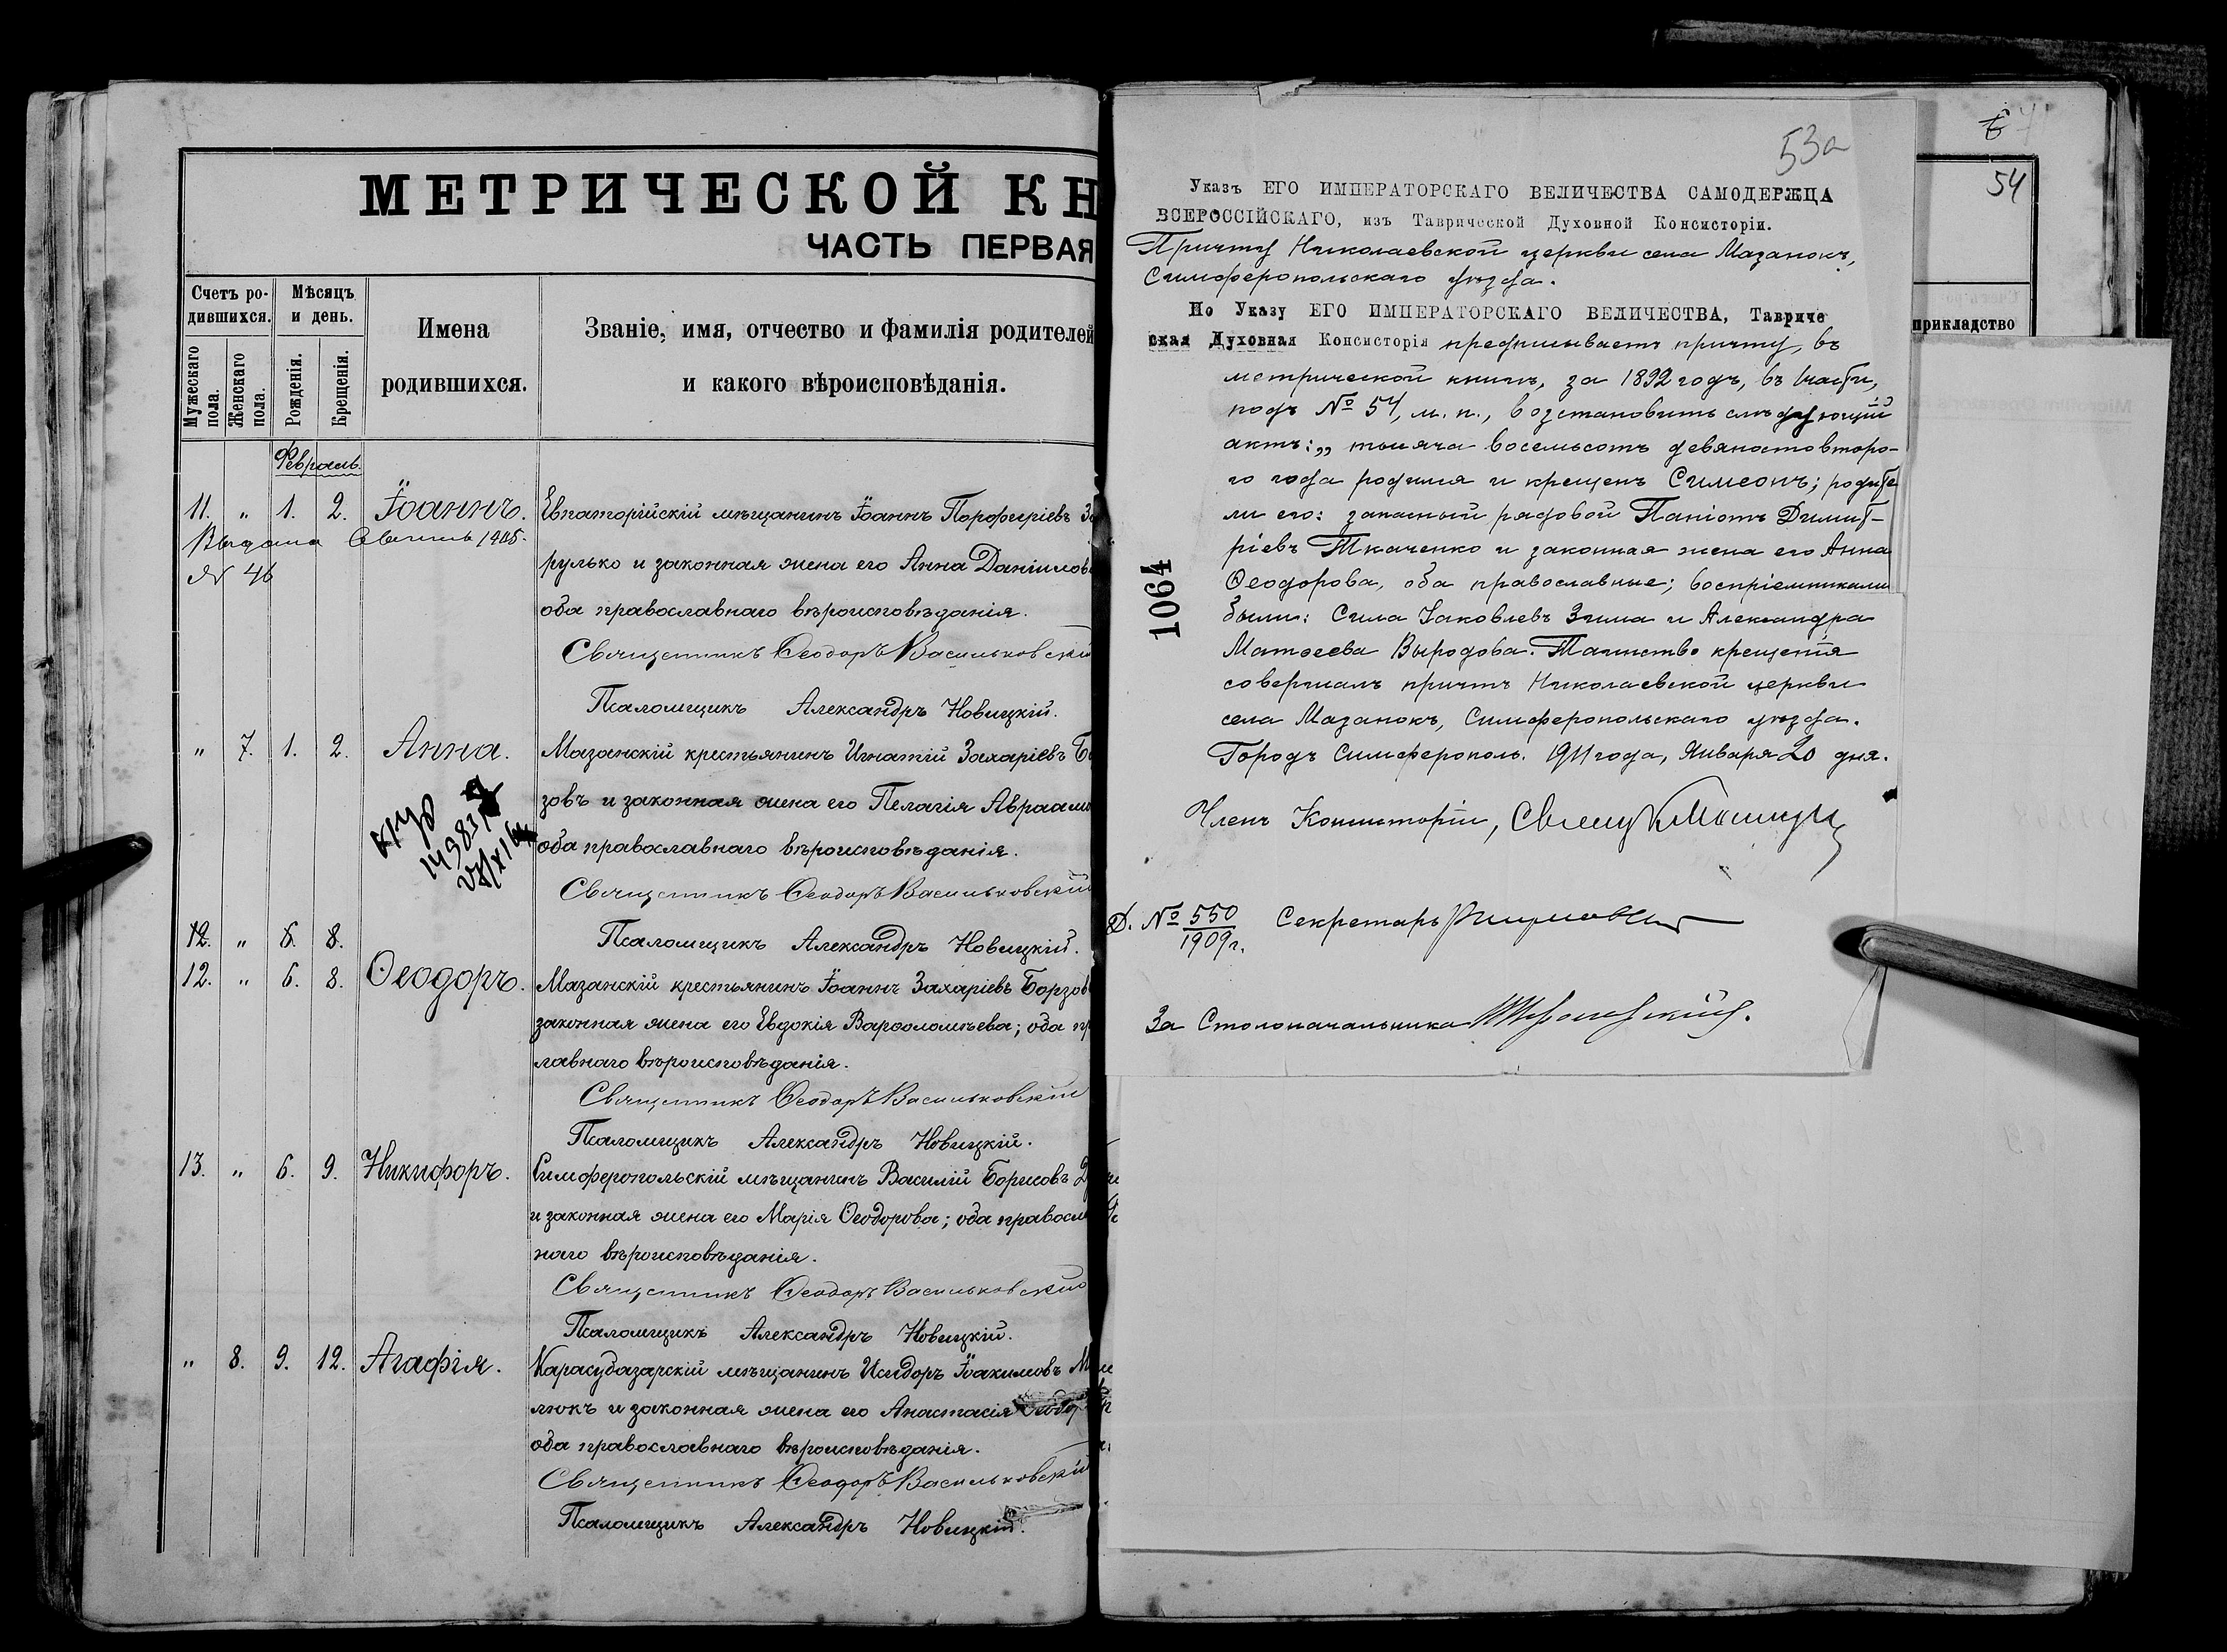 МЕТРИЧЕСКОЙ КН
ЧАСТЬ ПЕРВАЯ
Счетъ ро-
дившихся.
Мѣсяцъ
и день.
Мужескаго
пола.
Женскаго
пола.
Рожденія.
Крещенія.
Имена
родившихся.
Званіе, имя, отчество и фамилія родителей
и какого вѣроисповѣданія.
Февраль
11. „ 1. 2. Іоаннъ. Евпаторійскій мѣщанинъ Іоаннъ Порфиріевъ За
Выдана 1905.
№ 46
рулько и законная жена его Анна Даніилов
оба православнаго вѣроисповѣданія.
Священникъ Ѳеодоръ Васильковскій
Псаломщикъ Александръ Новицкій.
„ 7. 1. 2. Анна. Мазанскій крестьянинъ Игнатій Захаріевъ Бо
зовъ и законная жена его Пелагія Авраам
оба православнаго вѣроисповѣданія.
Священникъ Ѳеодоръ Васильковскій
Псаломщикъ Александръ Новицкій.
12. „ 6. 8.
12. „ 6. 8. Ѳеодоръ. Мазанскій крестьянинъ Іоаннъ Захаріевъ Борзов
законная жена его Евдокія Варѳоломѣева; оба пр
лавнаго вѣроисповѣданія.
Священникъ Ѳеодоръ Васильковскій
Псаломщикъ Александръ Новицкій.
13. „ 6. 9. Никифоръ. Симферопольскій мѣщанинъ Василій Борисовъ
и законная жена его Марія Ѳеодорова; оба правосл
наго вѣроисповѣданія.
Священникъ Ѳеодоръ Васильковскій
Псаломщикъ Александръ Новицкій.
„ 8. 9. 12. Агафія. Карасубазарскій мѣщанинъ Исидоръ Іоакимовъ
люкъ и законная жена его Анастасія Ѳеодор
оба православнаго вѣроисповѣданія.
Священникъ Ѳеодоръ Васильковскій
Псаломщикъ Александръ Новицкій.
53а
Указъ ЕГО ИМПЕРАТОРСКАГО ВЕЛИЧЕСТВА САМОДЕРЖЦА
ВСЕРОССІЙСКАГО, изъ Таврической Духовной Консисторіи.
Причту Николаевской церкви села Мазанокъ,
Симферопольскаго уѣзда.
По Указу ЕГО ИМПЕРАТОРСКАГО ВЕЛИЧЕСТВА, Тавриче
ская Духовная Консисторія предписываетъ причту, въ
метрической книгѣ, за 1892 годъ, въ I части,
подъ № 54, м. п., возстановить слѣдующій
актъ: „тысяча восемьсотъ девяносто второ-
го года родился и крещенъ Симеонъ; родите
ли его: запасный рядовой Паніотъ Димит-
ріевъ Ткаченко и законная жена его Анна
Ѳеодорова, оба православные; воспріемниками
были: Сила Іаковлевъ Зима и Александра
Матѳеева Выродова. Таинство крещенія
совершалъ причтъ Николаевской церкви
села Мазанокъ, Симферопольскаго уѣзда.
Городъ Симферополь. 1911 года, Января 20 дня.
Членъ Консисторіи,
Д. № 550
1909 г.
Секретарь
За Столоначальника
1064
54
прикладство